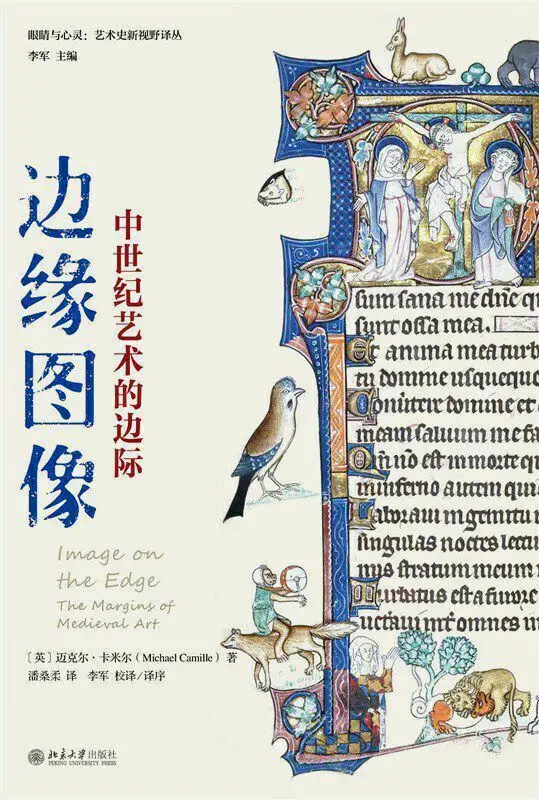 眼睛与心灵：艺术史新视野译丛
李军 主编
边缘图像
中世纪艺术的边际
Image on
the Edge
The Margins of
Medieval Art
［英］迈克尔·卡米尔（Michael Camille）著
潘桑柔 译 李军 校译/译序
北京大学出版社
PEKING UNIVERSITY PRESS
sum sana me dn̄e qu
sunt ossa mea.
Et anima mea turb
tu domine usquequo
Conuertere domine et
meam saluum me fa
Qm̄ nō est in morte qu
in inferno autem qui
Laboraui in gemitu
singulas noctes lectu
mis stratum meum
Turbatus est a furore